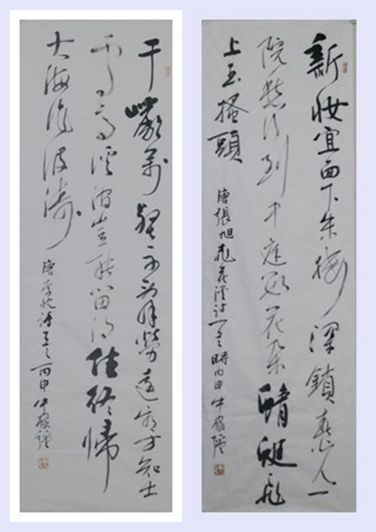 新妝宜面下朱樓深鎖春光一
院愁行到中庭數花朵蜻蜓飛
上玉搔頭
唐張旭 時丙申牛家
千巖萬壑不辭勞遠看方知出
處高溪澗豈能留得住終歸
大海作波濤
唐李忱詩 丙申牛家